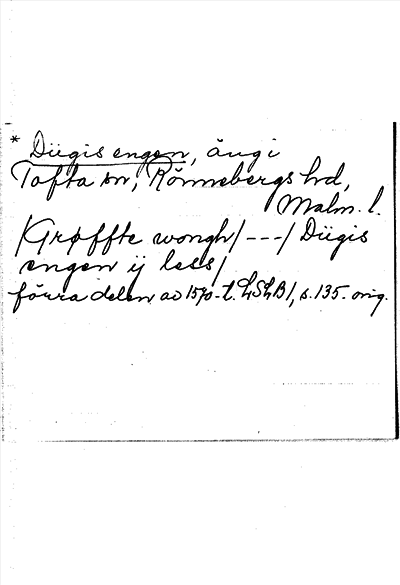 * Dügis engen, äng i
Tofta sn, Rönnebergs hd,
Malm. l.
/Grøffte wongh/ - - - / Dügis
engen ij less/
förra delen av 1570-t. LSLB1, s. 135. orig.